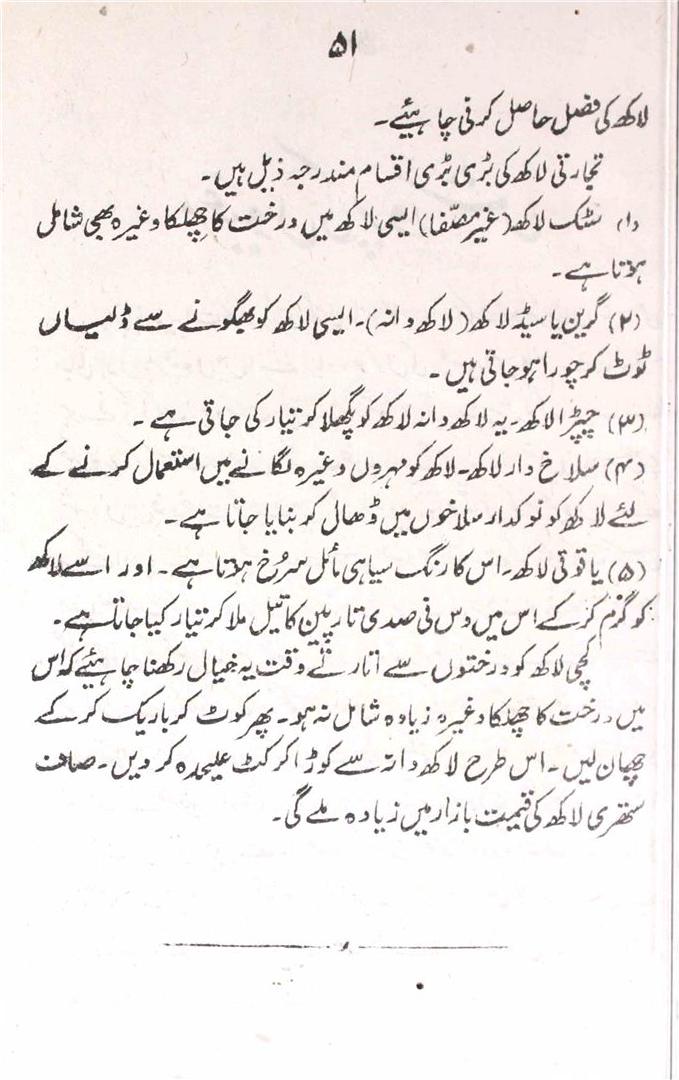 ۵۱
لاکھ کی فصل حاصل کرنی چاہیئے۔
تجارتی لاکھ کی بڑی بڑی اقسام مندرجہ ذیل ہیں۔
(۱) سٹک لاکھ (غیر مصّفا) ایسی لاکھ میں درخت کا چھلکا وغیرہ بھی شامل
ہوتا ہے۔
(۲) گرین یا سیڈ لاکھ (لاکھ دانہ)۔ ایسی لاکھ کو بھگونے سے ڈلیاں
ٹوٹ کر چورا ہو جاتی ہیں۔
(۳) چپڑا لاکھ۔ یہ لاکھ دانہ لاکھ کو پگھلا کر تیار کی جاتی ہے۔
(۴) سلاخ دار لاکھ۔ لاکھ کو مہروں وغیرہ لگانے میں استعمال کرنے کے
لئے لاکھ کو نوکدار سلاخوں میں ڈھال کر بنایا جاتا ہے۔
(۵) یاقوتی لاکھ۔ اس کا رنگ سیاہی مائل سرُخ ہوتا ہے۔ اور اسے لاکھ
کو گرم کر کے اس میں دس فی صدی تارپین کا تیل ملا کر تیار کیا جاتا ہے۔
کچی لاکھ کو درختوں سے اتارتے وقت یہ خیال رکھنا چاہیئے کہ اس
میں درخت کا چھلکا وغیرہ زیادہ شامل نہ ہو۔ پھر کوٹ کر باریک کر کے
چھان لیں۔ اس طرح لاکھ دانہ سے کوڑا کرکٹ علیحدہ کر دیں۔ صاف
ستھری لاکھ کی قیمت بازار میں زیادہ ملے گی۔